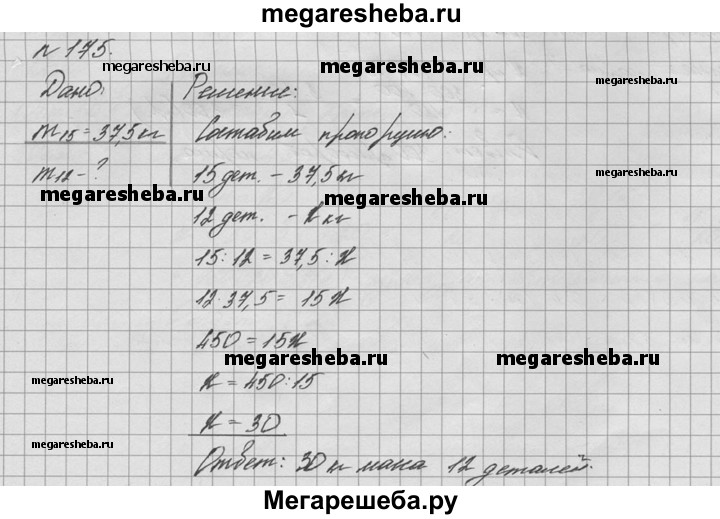 megaresheba.ru
n 175.
megaresheba.ru
megaresheba.ru
megaresheba.ru
Дано:
Решение:
m15 = 37,5 кг
Составим пропорцию:
m12 - ?
15 дет. - 37,5 кг
megaresheba.ru
megaresheba.ru
megaresheba.ru
12 дет. - x кг
15 : 12 = 37,5 : x
12 · 37,5 = 15x
450 = 15x
megaresheba.ru
megaresheba.ru
megaresheba.ru
x = 450 : 15
x = 30
megaresheba.ru
Ответ: 30 кг маса 12 деталей.
Мегарешеба.ру